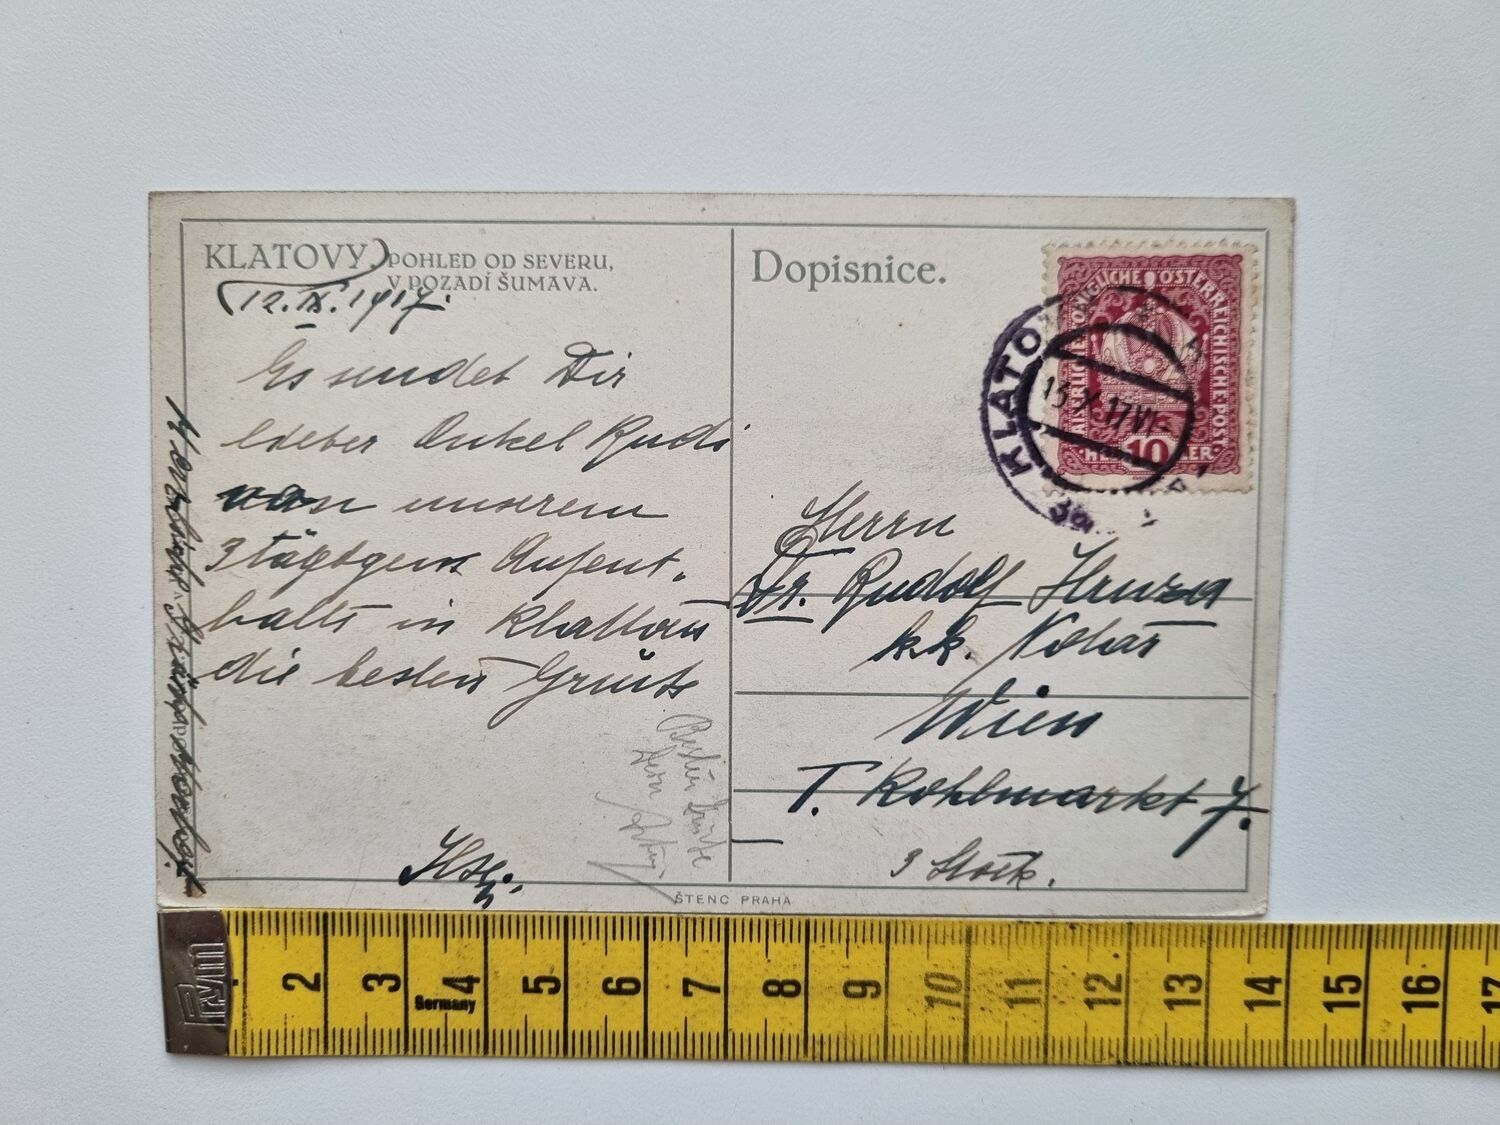 KLATOVY POHLED OD SEVERU,
V POZADÍ ŠUMAVA.
12. IX. 1917.
Es sendet Dir
lieber Onkel Rudi
von unserem
3 tägigen Aufent-
halts in Klattau
die besten Grüße
Beste Grüße
Dopisnice.
KAISERLICHE KÖNIGLICHE ÖSTERREICHISCHE POST
HELLER
10
KLATO
13.X.17
Herrn
Dr. Rudolf Hruza
k.k. Notar
Wien
I. Kohlmarkt 7.
3 Stock.
ŠTENC PRAHA
PYM
Germany
2 3 4 5 6 7 8 9 10 11 12 13 14 15 16 17